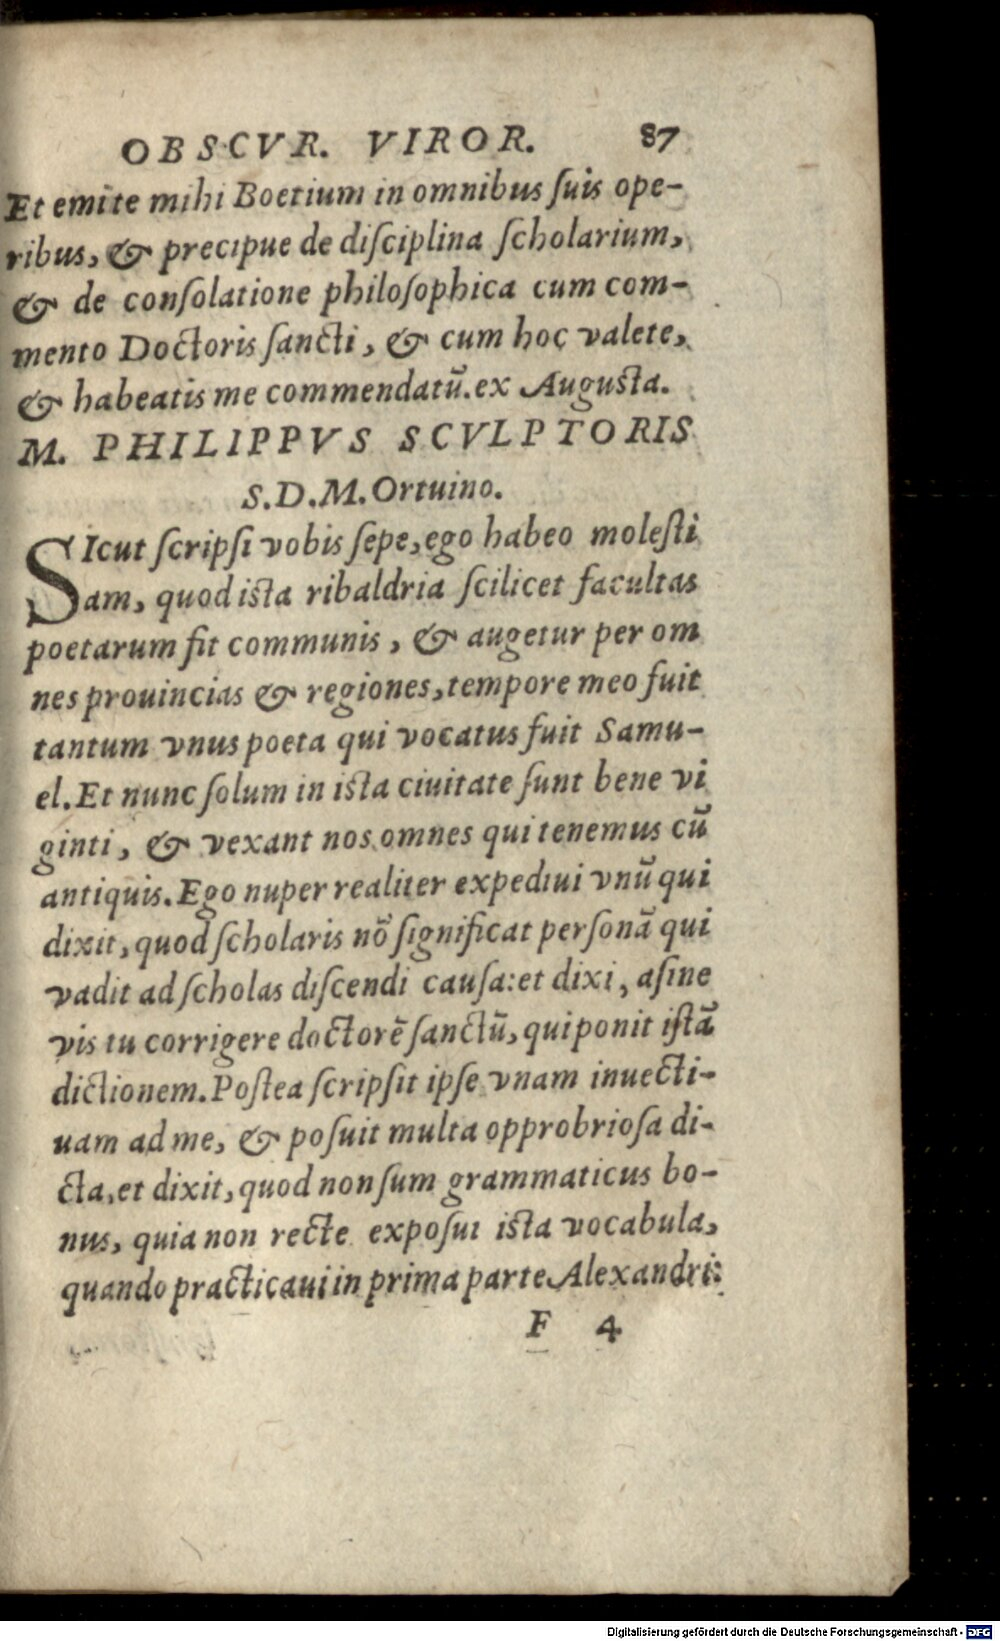 OBSCVR. VIROR. 87
Et emite mihi Boetium in omnibus ſuis ope-
ribus, & precipue de diſciplina ſcholarium,
& de conſolatione philoſophica cum com-
mento Doctoris ſancti, & cum hoc valete,
& habeatis me commendatū. ex Auguſta.
M. PHILIPPVS SCVLPTORIS
S. D. M. Ortuino.
SIcut ſcripſi vobis ſepe, ego habeo moleſti
am, quod iſta ribaldria ſcilicet facultas
poetarum fit communis, & augetur per om
nes prouincias & regiones, tempore meo fuit
tantum vnus poeta qui vocatus fuit Samu-
el. Et nunc ſolum in iſta ciuitate ſunt bene vi
ginti, & vexant nos omnes qui tenemus cū
antiquis. Ego nuper realiter expediui vnū qui
dixit, quod ſcholaris nō ſignificat perſonā qui
vadit ad ſcholas diſcendi cauſa: et dixi, aſine
vis tu corrigere doctorē ſanctū, qui ponit iſtā
dictionem. Poſtea ſcripſit ipſe vnam inuecti-
uam ad me, & poſuit multa opprobrioſa di-
cta, et dixit, quod non ſum grammaticus bo-
nus, quia non recte expoſui iſta vocabula,
quando practicaui in prima parte Alexandri:
F 4
Digitalisierung gefördert durch die Deutsche Forschungsgemeinschaft - DFG